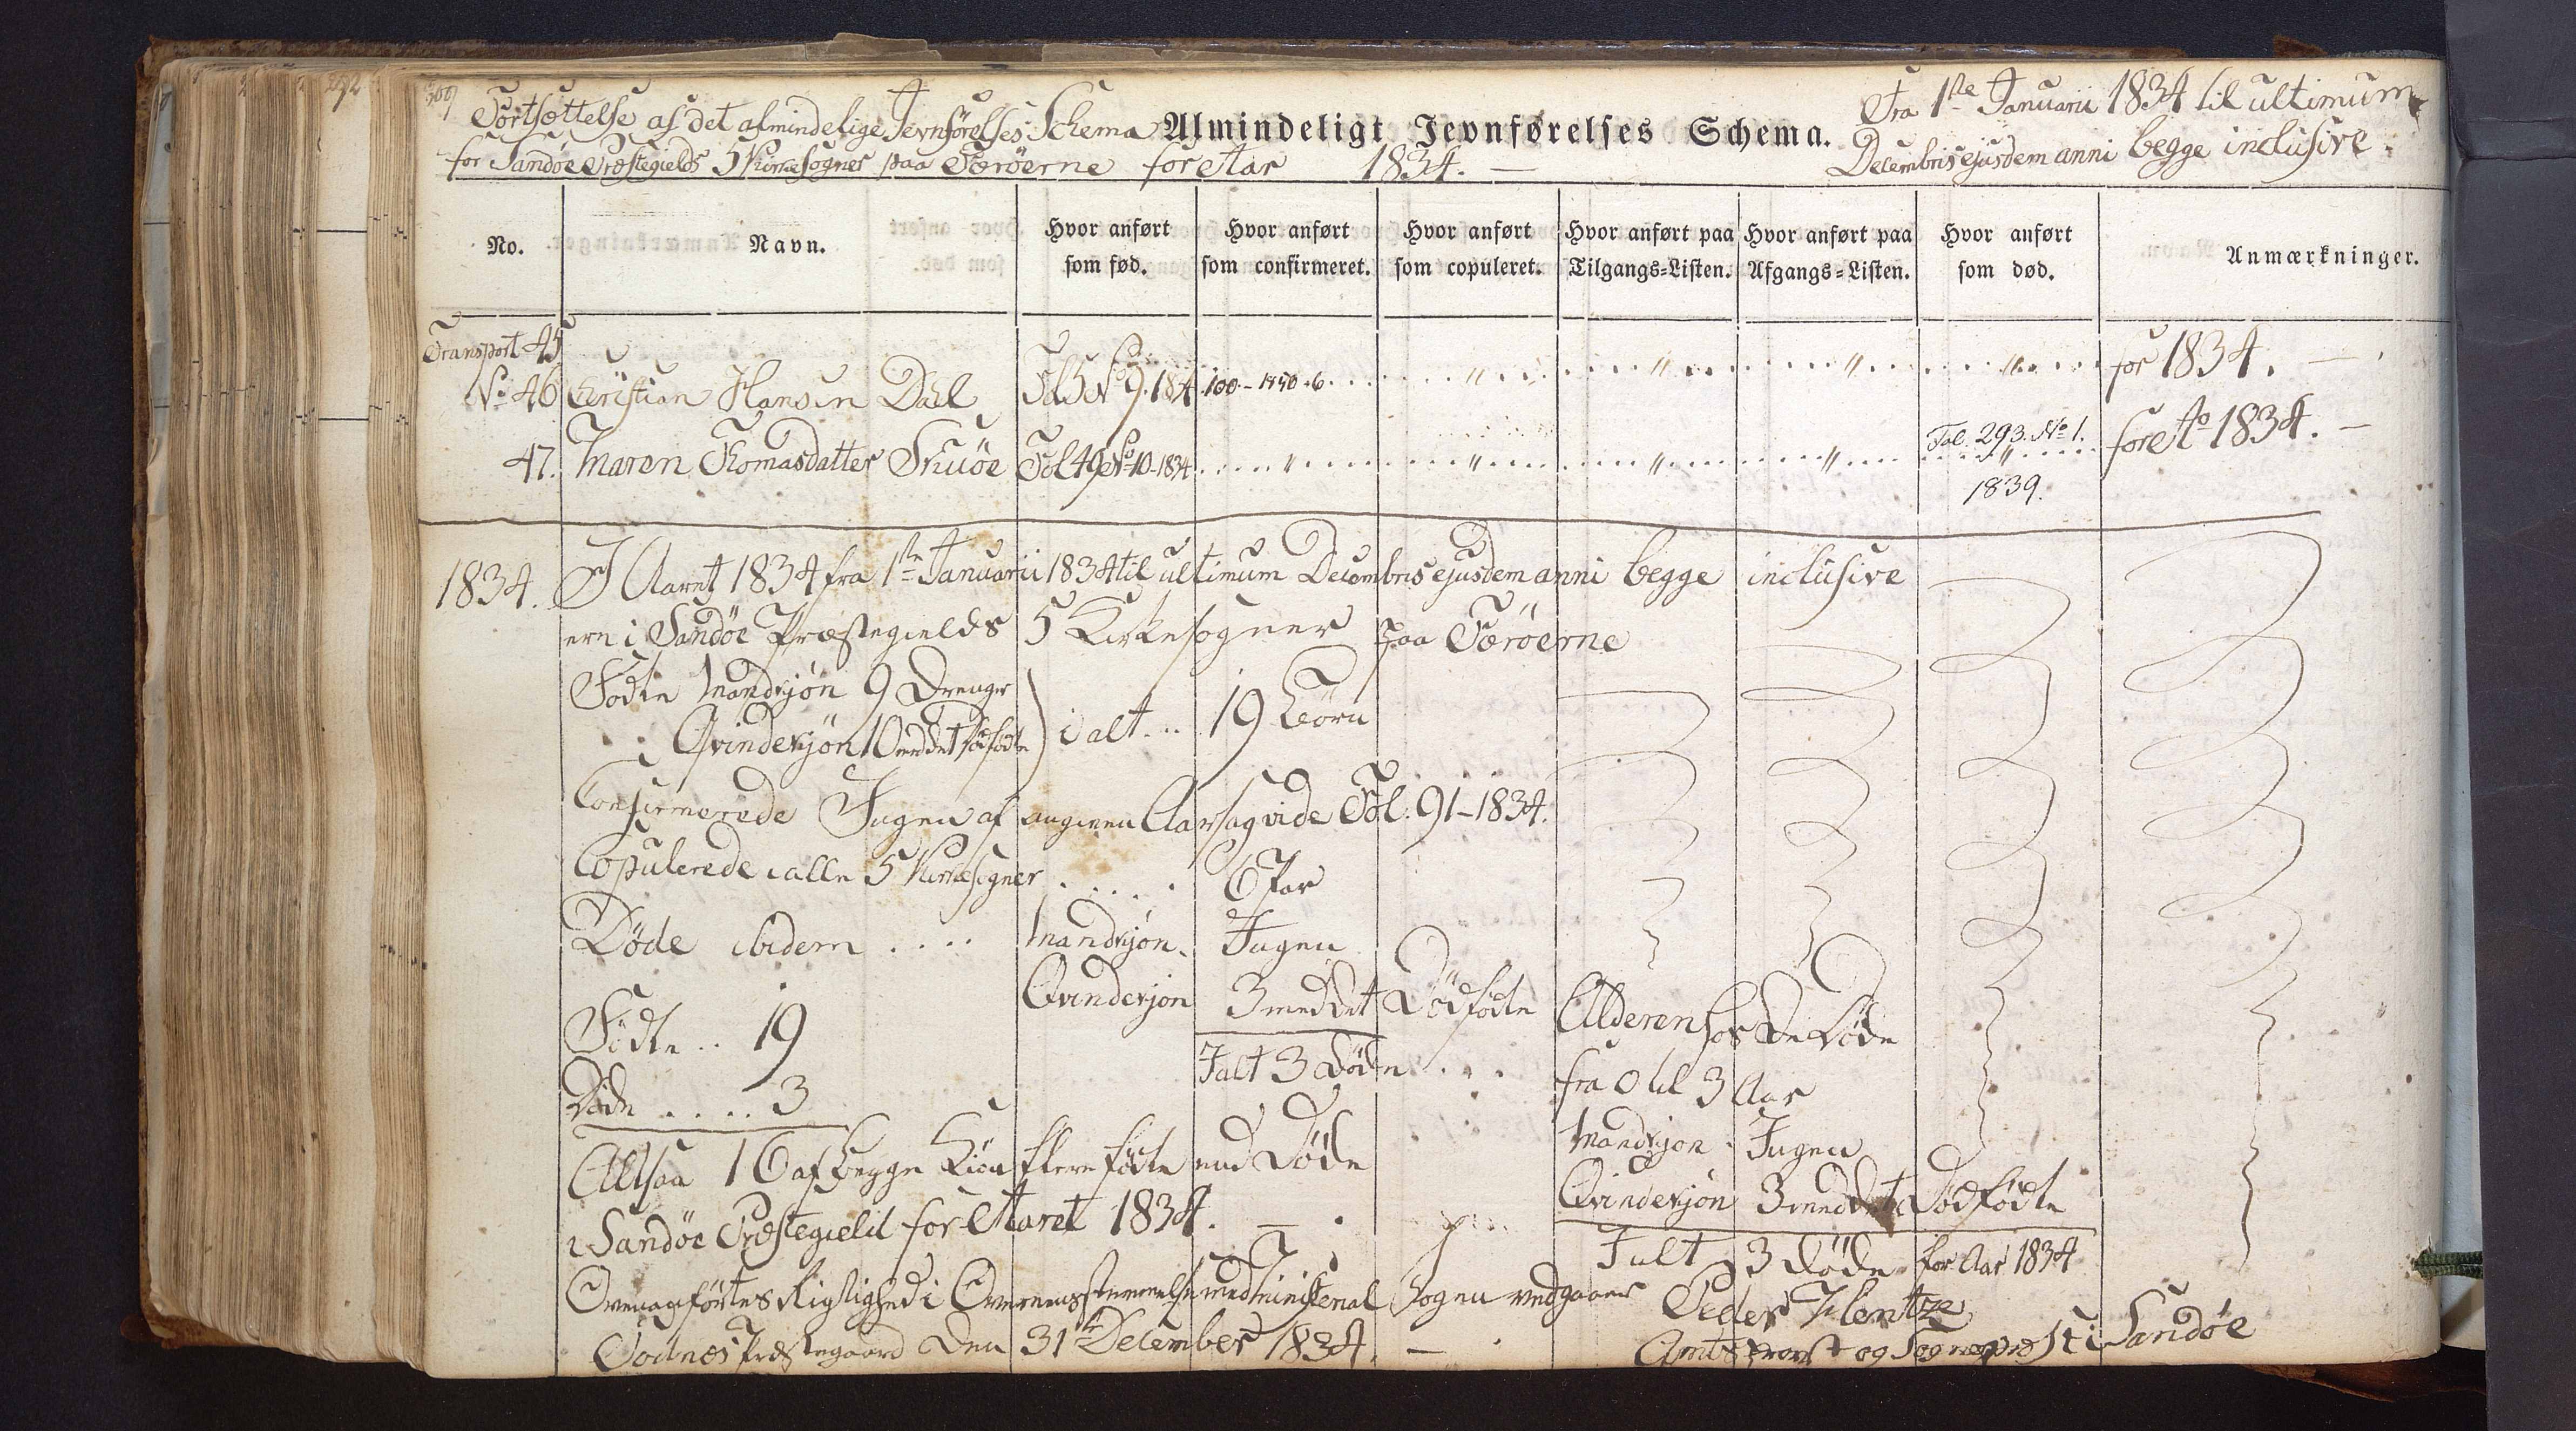 Fortsættelse af det almindelige Jevnförelses Schema Almindeligt Jevnførelses Schema. Fra 1ste Januarii 1834 til ultimum
for Sandöe Præstegields 5 Kirkesogner paa Færöerne for Aar 1834. — Decembris ejusdem anni begge inclusive.
No. Navn. Hvor anført som fød. Hvor anført som confirmeret. Hvor anført som copuleret. Hvor anført paa Tilgangs=Listen. Hvor anført paa Afgangs=Listen. Hvor anført som død. Anmærkninger.
Transport 45
No 46 Christian Hansen Dahl Fol 5 No 9. 184 100 - 1850 - 6 " " " " for 1834. —
47. Maren Thomasdatter Skuöe Fol 49 No 10 - 1834 " " " " Fol. 293. No 1. 1839. for Ao 1834. —
1834. I Aaret 1834 fra 1ste Januarii 1834 til ultimum Decembris ejusdem anni begge inclusive
ere i Sandöe Præstegields 5 Kirkesogner paa Færöerne
Födte Mandkjön 9 Drenge
Qvindekjön 10 med det dödfödte } i alt... 19 Börn
Confirmerede Ingen af angiven Aarsag vide Fol. 91 - 1834.
Copulerede i alle 5 Kirkesogner .... 6 Par
Döde ibidem .... Mandkjön. Ingen
Qvindekjön 3 med det Dödfödte
Födte .. 19
Ialt 3 Döde ...
Döde .... 3
Alderen for de Döde
fra 0 til 3 Aar
Mandkjön. Ingen
Qvindekjön 3 med det Dödfödte
Ialt 3 Döde for Aar 1834
Altsaa 16 af begge Kiön flere födte end Döde
i Sandöe Præstegield for Aaret 1834. —
Ovenanförtes Rigtighed i Overeensstemmelse med Ministerial Bogen vedgaaer
Todnes Præstegaard den 31te December 1834. —
Peder Hentze
Amtsprovst og Sognepræst i Sandöe